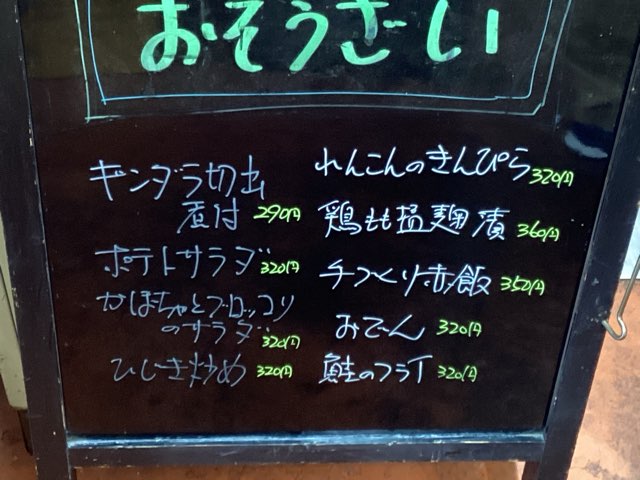 おそうざい
ギンダラ切出
煮付 290円
ポテトサラダ 320円
かぼちゃとブロッコリ
のサラダ 320円
ひじき炒め 320円
れんこんのきんぴら 320円
鶏もも塩麹漬 360円
手づくり赤飯 350円
おでん 320円
鮭のフライ 320円